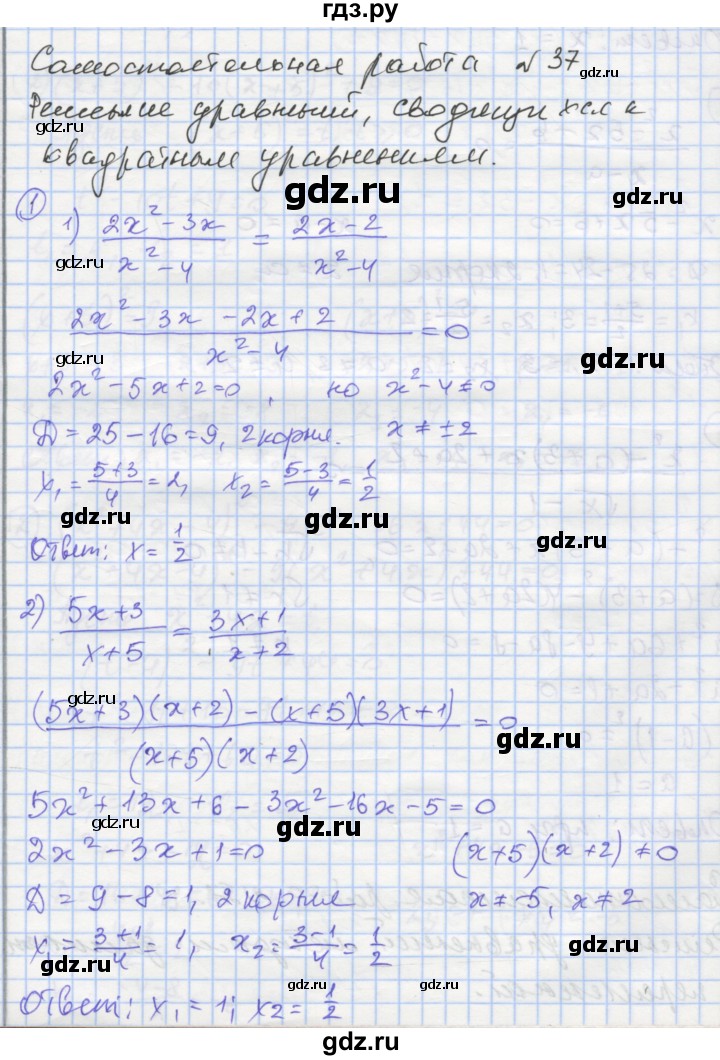 гдз.ру
Самостоятельная работа №37
Решение уравнений, сводящихся к
квадратным уравнениям.
gdz.ru
gdz.ru
gdz.ru
1
1) (2x² - 3x)/(x² - 4) = (2x - 2)/(x² - 4)
gdz.ru
gdz.ru
(2x² - 3x - 2x + 2)/(x² - 4) = 0
gdz.ru
gdz.ru
2x² - 5x + 2 = 0, но x² - 4 ≠ 0
gdz.ru
D = 25 - 16 = 9, 2 корня. x ≠ ±2
x₁ = (5+3)/4 = 2, x₂ = (5-3)/4 = 1/2
gdz.ru
gdz.ru
gdz.ru
Ответ: x = 1/2
2) (5x+3)/(x+5) = (3x+1)/(x+2)
gdz.ru
gdz.ru
((5x+3)(x+2) - (x+5)(3x+1))/((x+5)(x+2)) = 0
gdz.ru
5x² + 13x + 6 - 3x² - 16x - 5 = 0
gdz.ru
gdz.ru
2x² - 3x + 1 = 0 (x+5)(x+2) ≠ 0
D = 9 - 8 = 1, 2 корня x ≠ -5, x ≠ 2
x₁ = (3+1)/4 = 1, x₂ = (3-1)/4 = 1/2
gdz.ru
gdz.ru
gdz.ru
Ответ: x₁ = 1; x₂ = 1/2
gdz.ru
gdz.ru